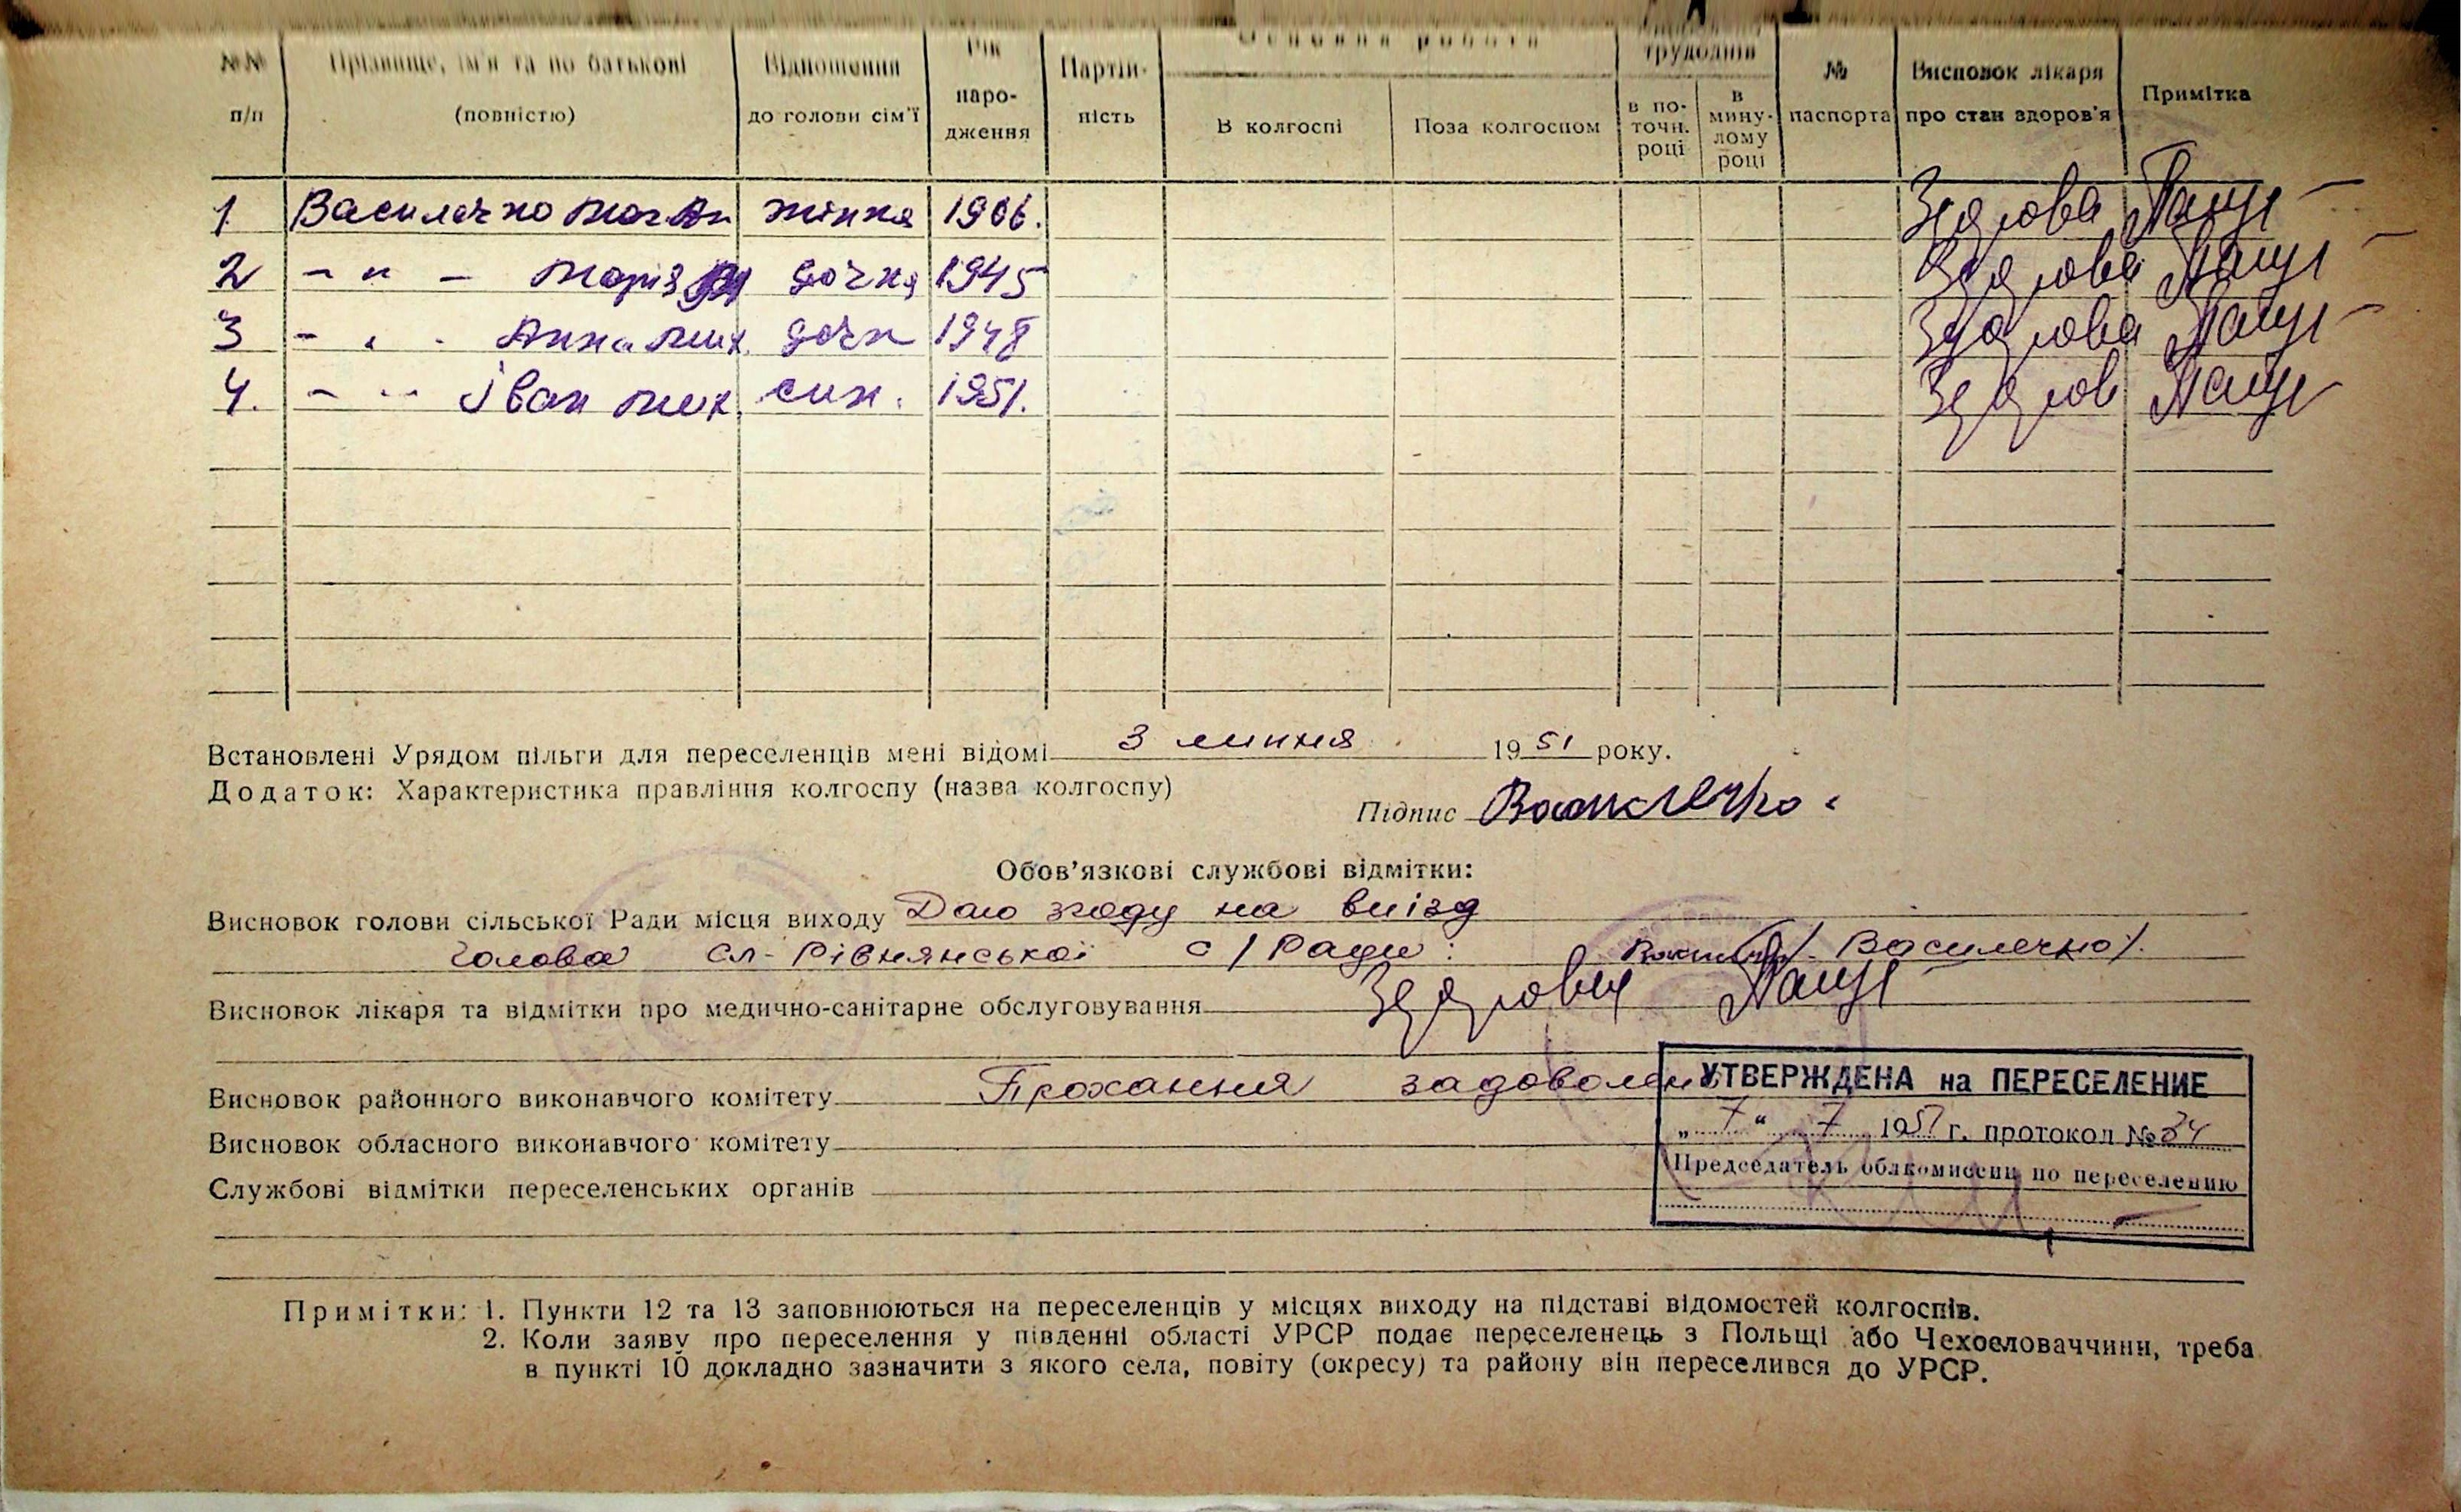 №№ Прізвище, ім'я та по батькові Відношення Рік Партій- Основна робота трудоднів № Висновок лікаря Примітка
п/п (повністю) до голови сім'ї наро- ність В колгоспі Поза колгоспом в по- в паспорта про стан здоров'я
дження точн. мину-
році лому
році
1 Василечко жінка 1906. Здорова
2 - " - Марія дочка 1945 Здорова
3 - " - Анна Мих. дочк 1948 Здорова
4. - " - Іван Мих. син. 1951. Здоров
Встановлені Урядом пільги для переселенців мені відомі 3 липня 1951 року.
Додаток: Характеристика правління колгоспу (назва колгоспу)
Підпис Василечко
Обов'язкові службові відмітки:
Висновок голови сільської Ради місця виходу Даю згоду на виїзд
Голова Сл-Рівнянської с/Ради: /Василечко/.
Висновок лікаря та відмітки про медично-санітарне обслуговування Здорові
Висновок районного виконавчого комітету Прохання задоволен
УТВЕРЖДЕНА на ПЕРЕСЕЛЕНИЕ
„7“ 7 1951 г. протокол №34
Председатель облкомиссии по переселению
Висновок обласного виконавчого комітету
Службові відмітки переселенських органів
Примітки: 1. Пункти 12 та 13 заповнюються на переселенців у місцях виходу на підставі відомостей колгоспів.
2. Коли заяву про переселення у південні області УРСР подає переселенець з Польщі або Чехословаччини, треба
в пункті 10 докладно зазначити з якого села, повіту (окресу) та району він переселився до УРСР.